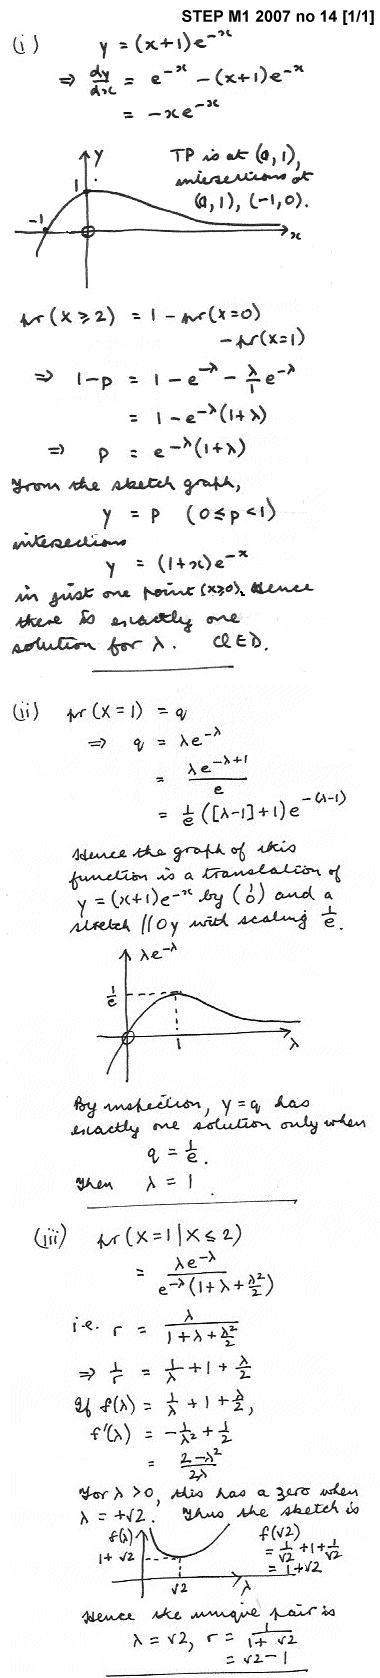 STEP M1 2007 no 14 [1/1]
(i) y = (x+1)e^{-x}
⇒ dy/dx = e^{-x} - (x+1)e^{-x}
= -xe^{-x}
y
TP is at (0,1),
intersections at
(0,1), (-1,0).
1
-1
O
x
pr(X ≥ 2) = 1 - pr(X=0)
- pr(X=1)
⇒ 1-p = 1 - e^{-λ} - λ/1 e^{-λ}
= 1 - e^{-λ}(1+λ)
⇒ p = e^{-λ}(1+λ)
From the sketch graph,
y = p (0 ≤ p < 1)
intersections
y = (1+x)e^{-x}
in just one point (x≥0). Hence
there is exactly one
solution for λ. QED.
(ii) pr(X=1) = q
⇒ q = λe^{-λ}
= λe^{-λ+1}/e
= 1/e ([λ-1]+1)e^{-(λ-1)}
Hence the graph of this
function is a translation of
y = (x+1)e^{-x} by (1 0) and a
stretch //Oy with scaling 1/e.
λe^{-λ}
1/e
O
1
λ
By inspection, y=q has
exactly one solution only when
q = 1/e.
Then λ = 1.
(iii) pr(X=1|X≤2)
= λe^{-λ}/(e^{-λ}(1+λ+λ²/2))
i.e. r = λ/(1+λ+λ²/2)
⇒ 1/r = 1/λ + 1 + λ/2
If f(λ) = 1/λ + 1 + λ/2,
f'(λ) = -1/λ² + 1/2
= (2-λ²)/2λ
For λ>0, this has a zero when
λ = +√2. Thus the sketch is
f(λ)
1+√2
√2
λ
f(√2)
= 1/√2 + 1 + 1/√2
= 1+√2
Hence the unique pair is
λ = √2, r = 1/(1+√2)
= √2 - 1